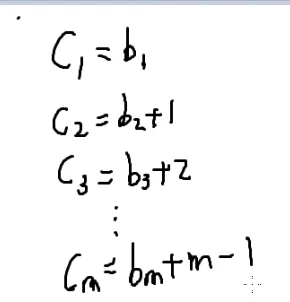 C₁ = b₁
C₂ = b₂+1
C₃ = b₃+2
⋮
Cₘ = bₘ+m-1